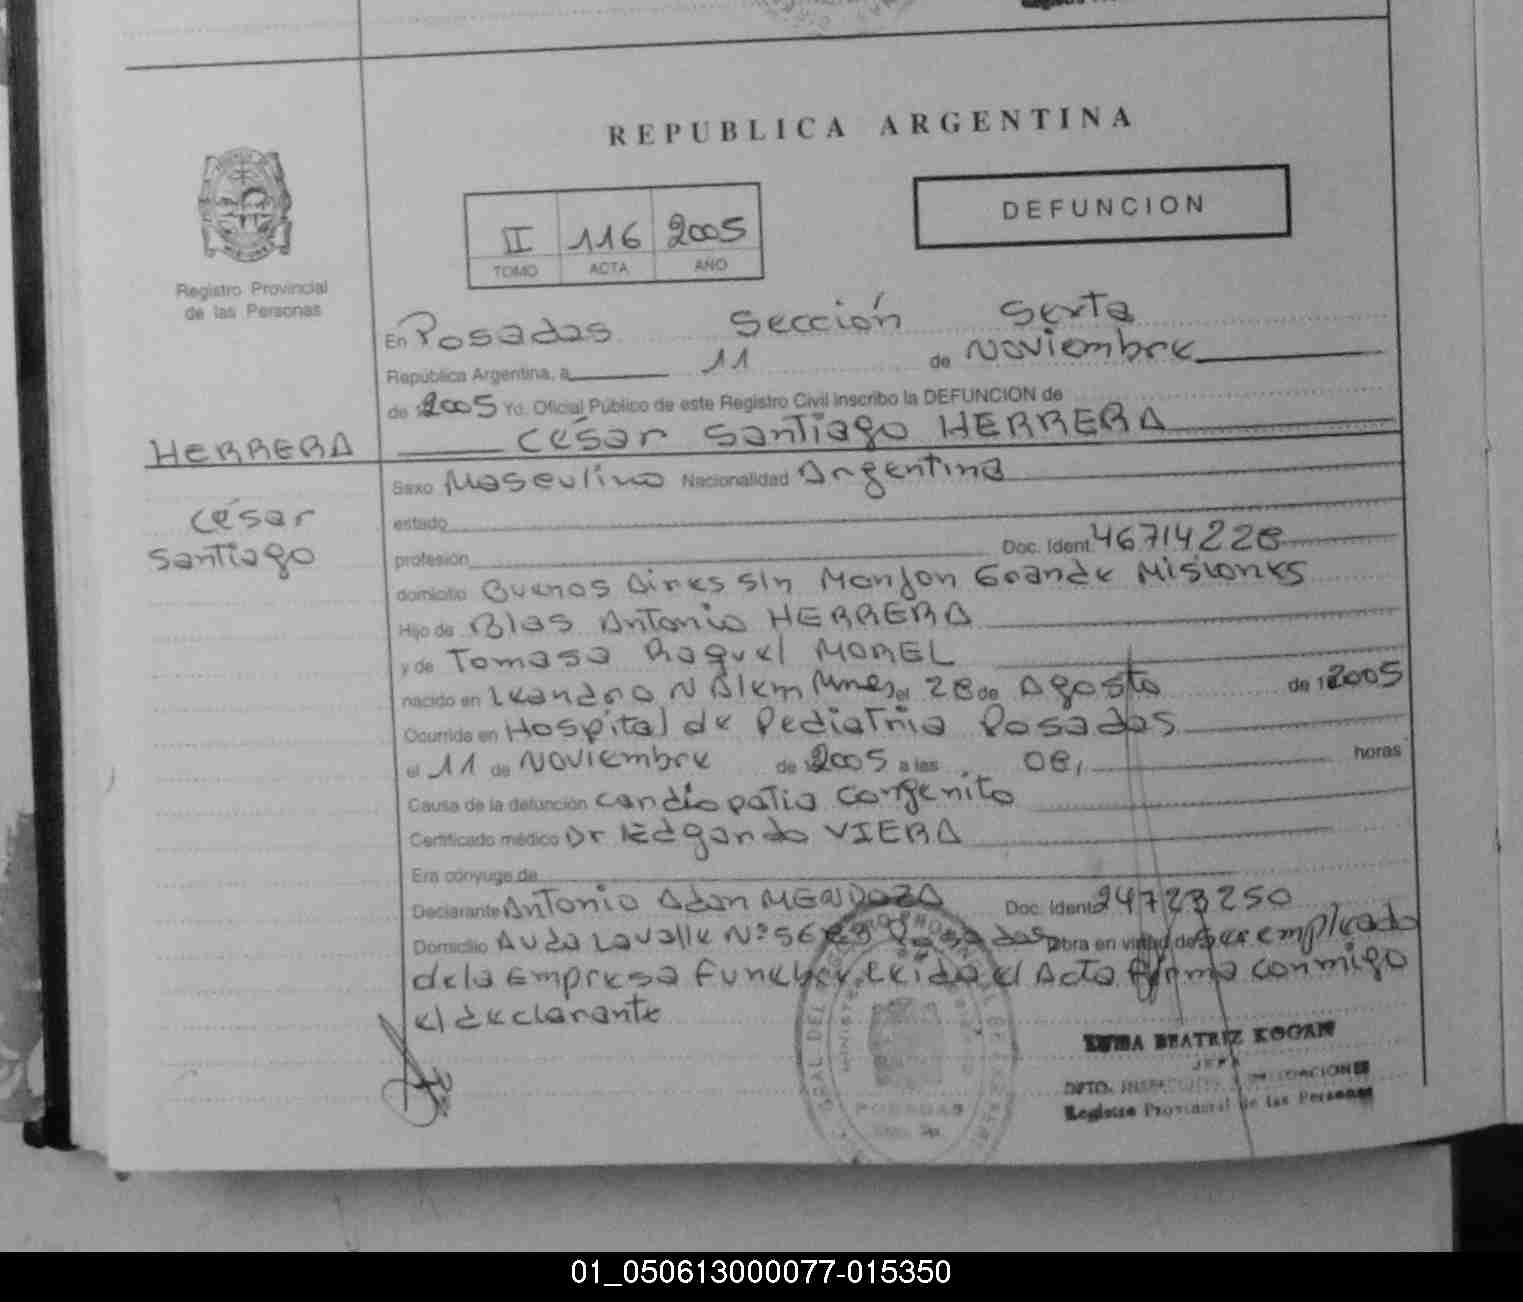 REPUBLICA ARGENTINA
DEFUNCION
II 116 2005
TOMO ACTA AÑO
Registro Provincial
de las Personas
En Posadas Sección Sexta
República Argentina, a 11 de Noviembre
de 2005 Yo, Oficial Público de este Registro Civil inscribo la DEFUNCION de
HERRERA
César Santiago HERRERA
César
Santiago
Sexo Masculino Nacionalidad Argentina
estado
profesión Doc. Ident. 46714228
domicilio Buenos Aires S/n Monjon Grande Misiones
Hijo de Blas Antonio HERRERA
y de Tomasa Raquel MOREL
nacido en Leandro N Alem Mnes el 28 de Agosto de 2005
Ocurrida en Hospital de Pediatria Posadas
el 11 de Noviembre de 2005 a las 08, horas
Causa de la defunción Cardiopatia Congenita
Certificado médico Dr Edgardo VIERA
Era cónyuge de
Declarante Antonio Adan MENDOZA Doc. Ident. 24723250
Domicilio Avda Lavalle Nº Posadas Obra en virtud de Ser empleado
de la Empresa Funebre. Leida el Acta firma conmigo
el declarante
BEATRIZ KOGAN
JEFA
DPTO.
Registro Provincial de las Personas
POSADAS
01_050613000077-015350